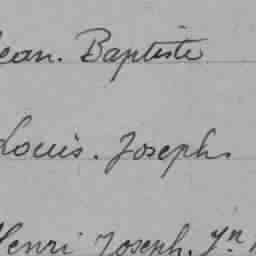 Jean. Baptiste
Louis. Joseph.
Henri Joseph. yn